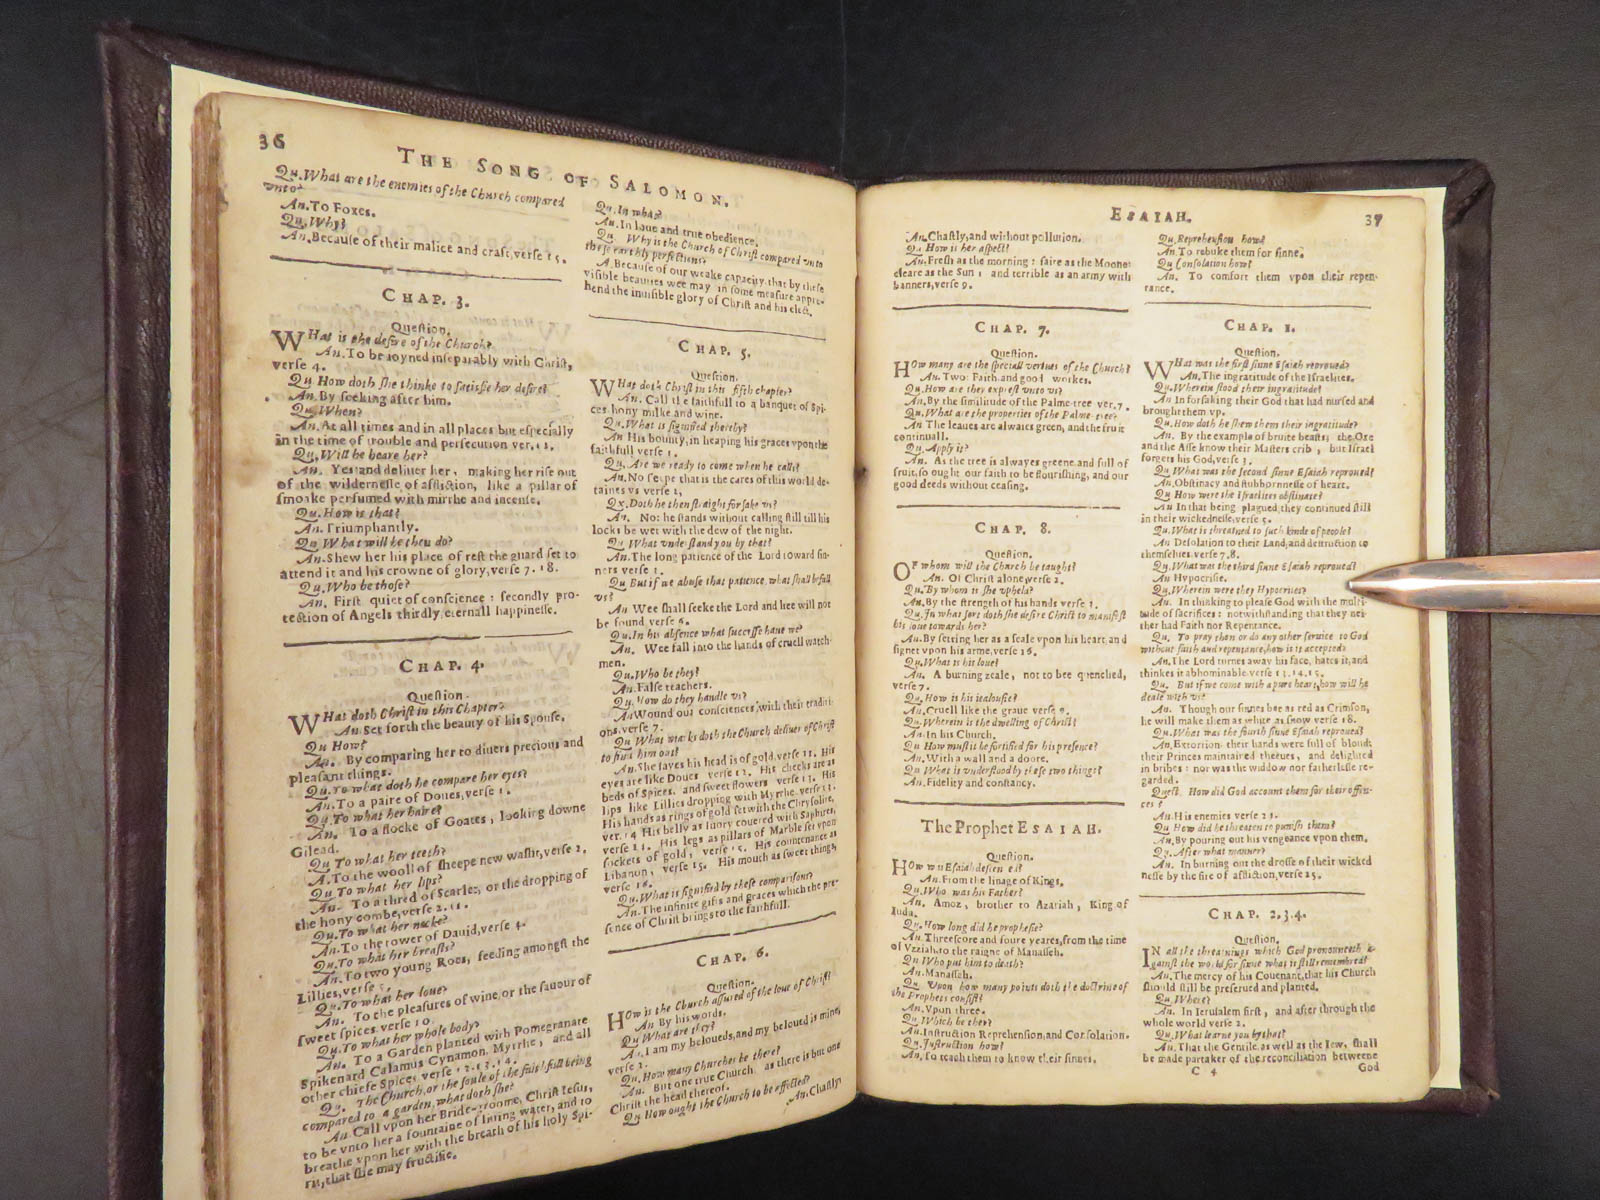 36
THE SONG OF SALOMON.
Qu. What are the enemies of the Church compared
vnto?
An. To Foxes.
Qu. Why?
An. Because of their malice and craft, verse 15.
CHAP. 3.
Question.
WHat is the desire of the Church?
An. To be ioyned inseparably with Christ,
verse 4.
Qu How doth she thinke to satisfie her desire?
An. By seeking after him.
Qu. When?
An. At all times and in all places but especially
in the time of trouble and persecution ver. 1 2.
Qu. Will he heare her?
An. Yes and deliuer her, making her rise out
of the wildernesse of affliction, like a pillar of
smoake perfumed with mirrhe and incense.
Qu. How is that?
An. Triumphantly.
Qu What will he then do?
An. Shew her his place of rest the guard set to
attend it and his crowne of glory, verse 7. 18.
Qu. Who be those?
An. First quiet of conscience: secondly pro-
tection of Angels thirdly, eternall happinesse.
CHAP. 4.
Question.
WHat doth Christ in this Chapter?
An. Set forth the beauty of his Spouse.
Qu How?
An. By comparing her to diuers precious and
pleasant things.
Qu. To what doth he compare her eyes?
An. To a paire of Doues, verse 1.
Qu. To what her haire?
An. To a flocke of Goates, looking downe
Gilead.
Qu To what her teeth?
A. To the wooll of sheepe new washt, verse 2.
Qu To what her lips?
An. To a thred of Scarlet, or the dropping of
the hony combe, verse 2. 11.
Qu. To what her necke?
An. To the tower of Dauid, verse 4.
Qu. To what her breasts?
An. To two young Roes, feeding amongst the
Lillies, verse 5.
Qu. To what her loue?
An. To the pleasures of wine, or the sauour of
sweet spices verse 10
Qu. To what her whole body?
An. To a Garden planted with Pomegranate
Spikenard Calamus Cynamon, Myrrhe, and all
other chiefe Spices verse 12. 13. 14.
Qu. The Church, or the soule of the faithfull being
compared to a garden, what doth she?
An Call vpon her Bride-groome, Christ Iesus,
to be vnto her a fountaine of liuing water, and to
breathe vpon her with the breath of his holy Spi-
rit, that she may fructifie.
Qu. In what?
An. In loue and true obedience.
Qu. Why is the Church of Christ compared vnto
these earthly perfections?
A. Because of our weake capacity, that by these
visible beauties wee may in some measure appre-
hend the inuisible glory of Christ and his elect.
CHAP. 5.
Question.
WHat doth Christ in this fifth chapter?
An. Call the faithfull to a banquet of Spi-
ces hony milke and wine.
Qu. What is signified thereby?
An His bounty, in heaping his graces vpon the
faithfull verse 1.
Qu. Are we ready to come when he calls?
An. No such is the cares of this world de-
taines vs verse 2,
Qu. Doth he then straight forsake vs?
An. No: he stands without calling still till his
locks be wet with the dew of the night.
Qu What vnderstand you by that?
An. The long patience of the Lord toward sin-
ners verse 1.
Qu But if we abuse that patience, what shall befall
vs?
An Wee shall seeke the Lord and hee will not
be found verse 6.
Qu. In his absence what successe haue we?
An. Wee fall into the hands of cruell watch-
men.
Qu. Who be they?
An. False teachers.
Qu. How do they handle vs?
An Wound our consciences, with their traditi-
ons. verse 7.
Qu What marks doth the Church deliuer of Christ
to find him out?
An. She sayes his head is of gold, verse 11. His
eyes are like Doues verse 12. His cheeks are as
beds of Spices. and sweet flowers verse 13. His
lips like Lillies dropping with Myrrhe. verse 13.
His hands as rings of gold set with the Chrysolite,
ver. 14 His belly as Iuory couered with Saphires,
verse 14. His legs as pillars of Marble set vpon
sockets of gold, verse 15. His countenance as
Libanon, verse 15. His mouth as sweet things,
verse 16.
Qu. What is signified by these comparisons?
An. The infinite gifts and graces which the pre-
sence of Christ brings to the faithfull.
CHAP. 6.
Question.
HOw is the Church assured of the loue of Christ?
An By his words.
Qu What are they?
A. I am my beloueds, and my beloued is mine,
verse 2.
Qu. How many Churches be there?
An. But one true Church as there is but one
Christ the head thereof.
Qu How ought the Church to be affected?
An. Chastly,
ESAIAH.
37
An. Chastly, and without pollution.
Qu. How is her aspect?
An. Fresh as the morning: faire as the Moone:
cleare as the Sun: and terrible as an army with
banners, verse 9.
CHAP. 7.
Question.
HOw many are the speciall vertues of the Church?
An. Two: Faith and good workes.
Qu. How are they exprest vnto vs?
An. By the similitude of the Palme-tree ver. 7.
Qu. What are the properties of the Palme-tree?
An The leaues are alwaies green, and the fruit
continuall.
Qu. Apply it?
An. As the tree is alwayes greene and full of
fruit, so ought our faith to be flourishing, and our
good deeds without ceasing.
CHAP. 8.
Question.
OF whom will the Church be taught?
An. Of Christ alone, verse 2.
Qu. By whom is she vpheld?
An. By the strength of his hands verse 1.
Qu. In what sort doth she desire Christ to manifest
his loue towards her?
An. By setting her as a seale vpon his heart, and
signet vpon his arme, verse 16.
Qu. What is his loue?
An. A burning zeale, not to bee quenched,
verse 7.
Qu. How is his iealousie?
An. Cruell like the graue verse 6.
Qu. Wherein is the dwelling of Christ?
An. In his Church.
Qu How must it be fortified for his presence?
An. With a wall and a doore.
Qu What is vnderstood by these two things?
An. Fidelity and constancy.
The Prophet ESAIAH.
Question.
HOw was Esaiah descended?
An. From the linage of Kings.
Qu. Who was his Father?
An. Amoz, brother to Azariah, King of
Iuda.
Qu. How long did he prophesie?
An. Threescore and foure yeares, from the time
of Vzziah to the raigne of Manasseh.
Qu Who put him to death?
An. Manasseh.
Qu. Vpon how many points doth the doctrine of
the Prophets consist?
An. Vpon three.
Qu. Which be they?
An. Instruction Reprehension, and Consolation.
Qu. Instruction how?
An. To teach them to know their sinnes.
Qu. Reprehension how?
An. To rebuke them for sinne.
Qu Consolation how?
An. To comfort them vpon their repen-
tance.
CHAP. 1.
Question.
WHat was the first sinne Esaiah reproued?
An. The ingratitude of the Israelites.
Qu. Wherein stood their ingratitude?
An In forsaking their God that had nursed and
brought them vp.
Qu. How doth he shew them their ingratitude?
An. By the example of bruite beasts; the Oxe
and the Asse know their Masters crib, but Israel
forgets his God, verse 3.
Qu. What was the second sinne Esaiah reproued?
An. Obstinacy and stubbornnesse of heart.
Qu How were the Israelites obstinate?
An In that being plagued, they continued still
in their wickednesse, verse 5.
Qu. What is threatned to such kinde of people?
An Desolation to their Land, and destruction to
themselues verse 7. 8.
Qu. What was the third sinne Esaiah reproued?
An Hypocrisie.
Qu. Wherein were they Hypocrites?
An. In thinking to please God with the multi-
tude of sacrifices: notwithstanding that they nei-
ther had Faith nor Repentance.
Qu. To pray then or do any other seruice to God
without faith and repentance, how is it accepted?
An. The Lord turnes away his face, hates it, and
thinkes it abhominable verse 13. 14. 15.
Qu. But if we come with a pure heart, how will he
deale with vs?
An. Though our sinnes bee as red as Crimson,
he will make them as white as snow verse 18.
Qu. What was the fourth sinne Esaiah reproued?
An. Extortion: their hands were full of bloud:
their Princes maintained theeues, and delighted
in bribes: nor was the widow nor fatherlesse re-
garded.
Quest. How did God account them for their offen-
ces?
An. His enemies verse 24.
Qu How did he threaten to punish them?
An. By pouring out his vengeance vpon them.
Qu. After what manner?
An. In burning out the drosse of their wicked
nesse by the fire of affliction, verse 25.
CHAP. 2. 3. 4.
Question.
IN all the threatnings which God pronounceth a-
gainst the world for sinne what is still remembred?
An. The mercy of his Couenant, that his Church
should still be preserued and planted.
Qu. Where?
An. In Ierusalem first, and after through the
whole world verse 2.
Qu. What learne you by that?
An. That the Gentile as well as the Iew, shall
be made partaker of the reconciliation betweene
C 4
God